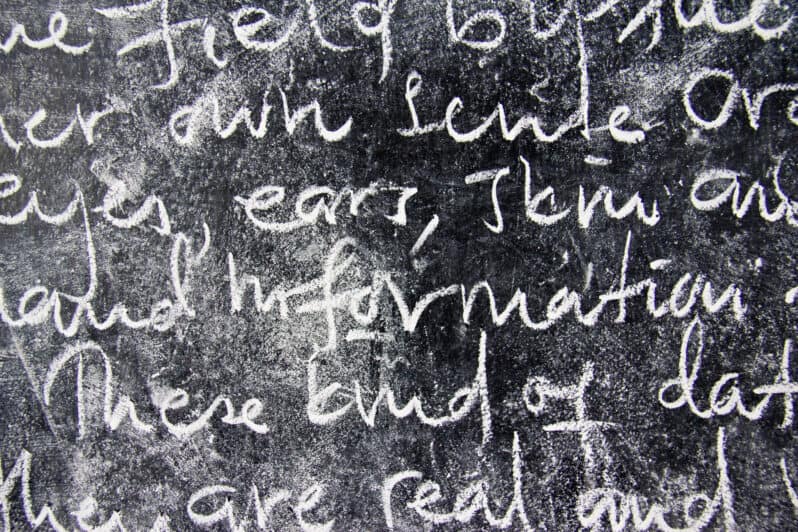 field by
her own sense or
eyes, ears, skin and
and information
These kind of dat
they are real and